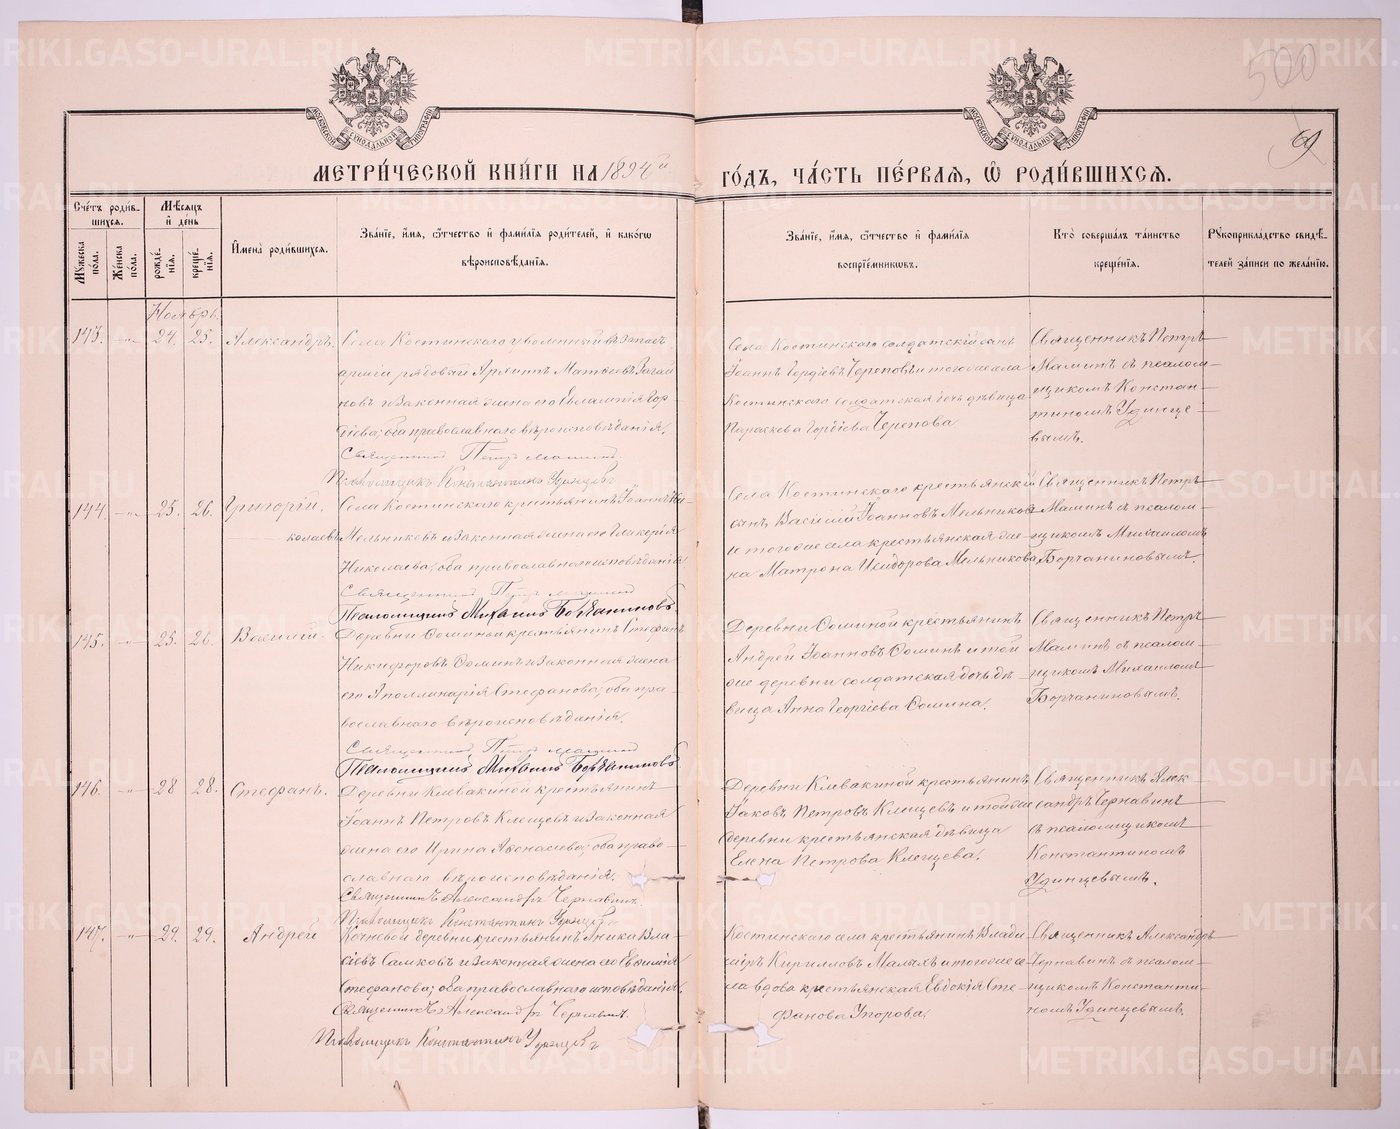 METRIKI.GASO-URAL.RU
500
69
МОСКОВСКОЙ СѴНОДАЛЬНОЙ ТИПОГРАФІИ
МЕТРИ́ЧЕСКОЙ КНИ́ГИ НА 1894й ГО́ДЪ, ЧА́СТЬ ПЕ́РВАЯ, Ѡ РОДИ́ВШИХСЯ.
Сче́тъ роди́вшихся.
Мꙋжеска по́ла.
Же́нска по́ла.
Мѣ́сяцъ и де́нь
рожде́нія.
креще́нія.
Имена̀ роди́вшихся.
Зва́ніе, и́мя, ѻ҆́тчество и фами́лія роди́телей, и како́гѡ
вѣроисповѣ́данія.
Зва́ніе, и́мя, ѻ҆́тчество и фами́лія
воспріе́мникѡвъ.
Кто̀ соверша́лъ та́инство
креще́нія.
Рꙋкоприкла́дство свидѣ́телей за́писи по жела́нію.
Ноябрь.
143. -„- 24. 25. Александръ.
Села Костинскаго уволенный въ запасъ
арміи рядовой Архипъ Матѳіевъ Загай
новъ и законная жена его Евлампія Гор
діева; оба православнаго вѣроисповѣданія.
Священникъ Петръ Маминъ
Псаломщикъ Константинъ Удинцевъ
Села Костинскаго солдатскій сынъ
Іоаннъ Гордіевъ Череповъ и тогоже села
Костинскаго солдатская дочь дѣвица
Параскева Гордіева Черепова
Священникъ Петръ
Маминъ съ псалом-
щикомъ Констан-
тиномъ Удинце-
вымъ.
144. -„- 25. 26. Григорій.
Села Костинскаго крестьянинъ Іоаннъ Ни-
колаевъ Мельниковъ и законная жена его Гликерія
Николаева; оба православнаго исповѣданія.
Священникъ Петръ Маминъ
Псаломщикъ Михаилъ Борчаниновъ
Села Костинскаго крестьянскій
сынъ Василій Іоанновъ Мельниковъ
и тогоже села крестьянская же-
на Матрона Исидорова Мельникова
Священникъ Петръ
Маминъ съ псалом-
щикомъ Михаиломъ
Борчаниновымъ.
145. -„- 25. 26. Василій.
Деревни Соминой крестьянинъ Стефанъ
Никифоровъ Соминъ и законная жена
его Аполлинарія Стефанова; оба пра-
вославнаго вѣроисповѣданія.
Священникъ Петръ Маминъ
Псаломщикъ Михаилъ Борчаниновъ
Деревни Соминой крестьянинъ
Андрей Іоанновъ Соминъ и той
же деревни солдатская дочь дѣ-
вица Анна Георгіева Сомина.
Священникъ Петръ
Маминъ съ псалом-
щикомъ Михаиломъ
Борчаниновымъ.
146. -„- 28 28. Стефанъ.
Деревни Клевакиной крестьянинъ
Іоаннъ Петровъ Клещевъ и законная
жена его Ирина Аѳонасіева; оба право-
славнаго вѣроисповѣданія.
Священникъ Александръ Чернавинъ.
Псаломщикъ Константинъ Удинцевъ
Деревни Клевакиной крестьянинъ
Іаковъ Петровъ Клещевъ и тойже
деревни крестьянская дѣвица
Елена Петрова Клещева.
Священникъ Алек
сандръ Чернавинъ
съ псаломщикомъ
Константиномъ
Удинцевымъ.
147. -„- 29. 29. Андрей
Кочневой деревни крестьянинъ Аника Вла-
сіевъ Самковъ и законная жена его Евѳимія
Стефанова; оба православнаго исповѣданія.
Священникъ Александръ Чернавинъ.
Псаломщикъ Константинъ Удинцевъ
Костинскаго села крестьянинъ Влади
міръ Кирилловъ Малыхъ и тогоже се-
ла вдова крестьянская Евдокія Сте-
фанова Упорова.
Священникъ Александръ
Чернавинъ съ псалом-
щикомъ Константи-
номъ Удинцевымъ.